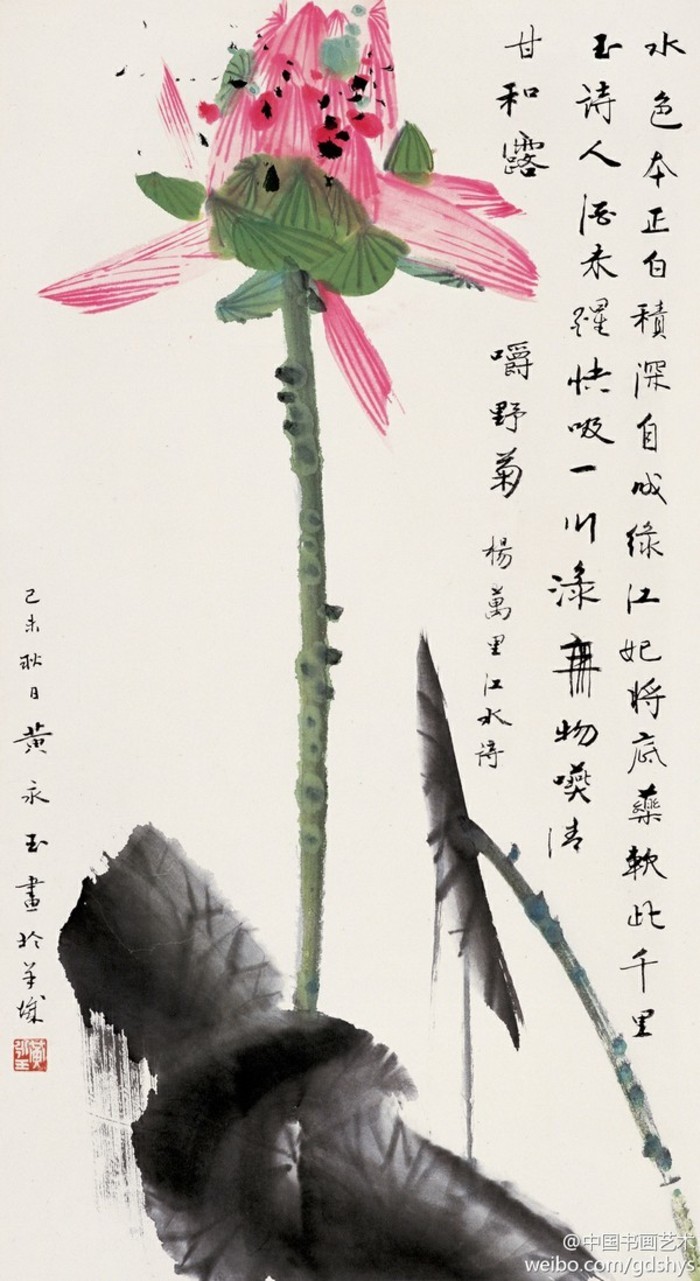 水色本正白積深自成綠江妃將底藥軟此千里
玉詩人酒未醒快吸一川淥無物嚥清
甘和露嚼野菊 楊萬里江水詩
己未秋日黃永玉畫於羊城
黃永玉
@中国书画艺术
weibo.com/gdshys